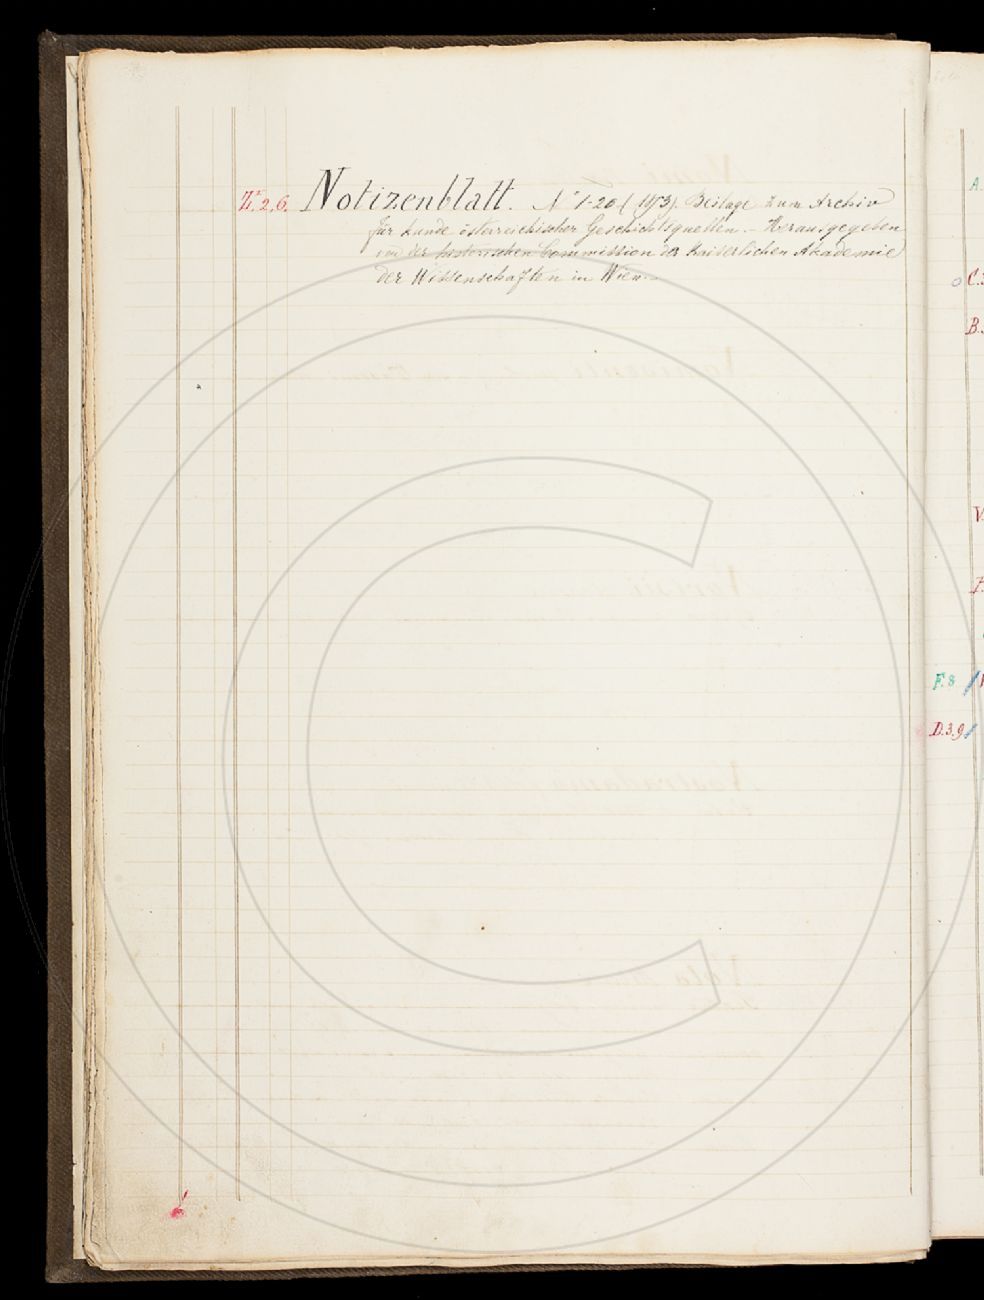 Z. 2. 6. Notizenblatt. No 1-20 (1853). Beilage zum Archiv
für Kunde österreichischer Geschichtsquellen. – Herausgegeben
von der historischen Commission der Kaiserlichen Akademie
der Wissenschaften in Wien. –
A.
C.
B.
F. 8
D. 3. 9